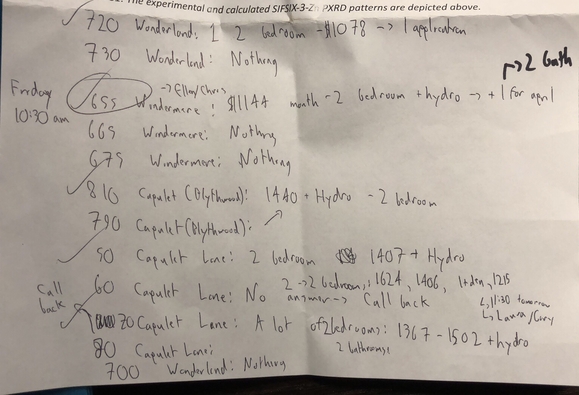 The experimental and calculated SIFSIX-3-Zn PXRD patterns are depicted above.
720 Wonderland: 1 2 bedroom - $1078 -> 1 application
730 Wonderland: Nothing
-> 2 bath
Friday 10:30 am
-> Ellen/Chris
655 Windermere: $1144 month - 2 bedroom + hydro -> + 1 for april
665 Windermere: Nothing
675 Windermere: Nothing
810 Capulet (Blythwood): 1440 + Hydro - 2 bedroom
790 Capulet (Blythwood):
50 Capulet Lane: 2 bedroom 1407 + Hydro
2 -> 2 bedroom, 1624, 1406, 1+den, 1215
Call back
60 Capulet Lane: No answer -> Call back
11:30 tomorrow
Laura/Cory
70 Capulet Lane: A lot of 2 bedrooms: 1367 - 1502 + hydro
2 bathrooms
80 Capulet Lane:
700 Wonderland: Nothing